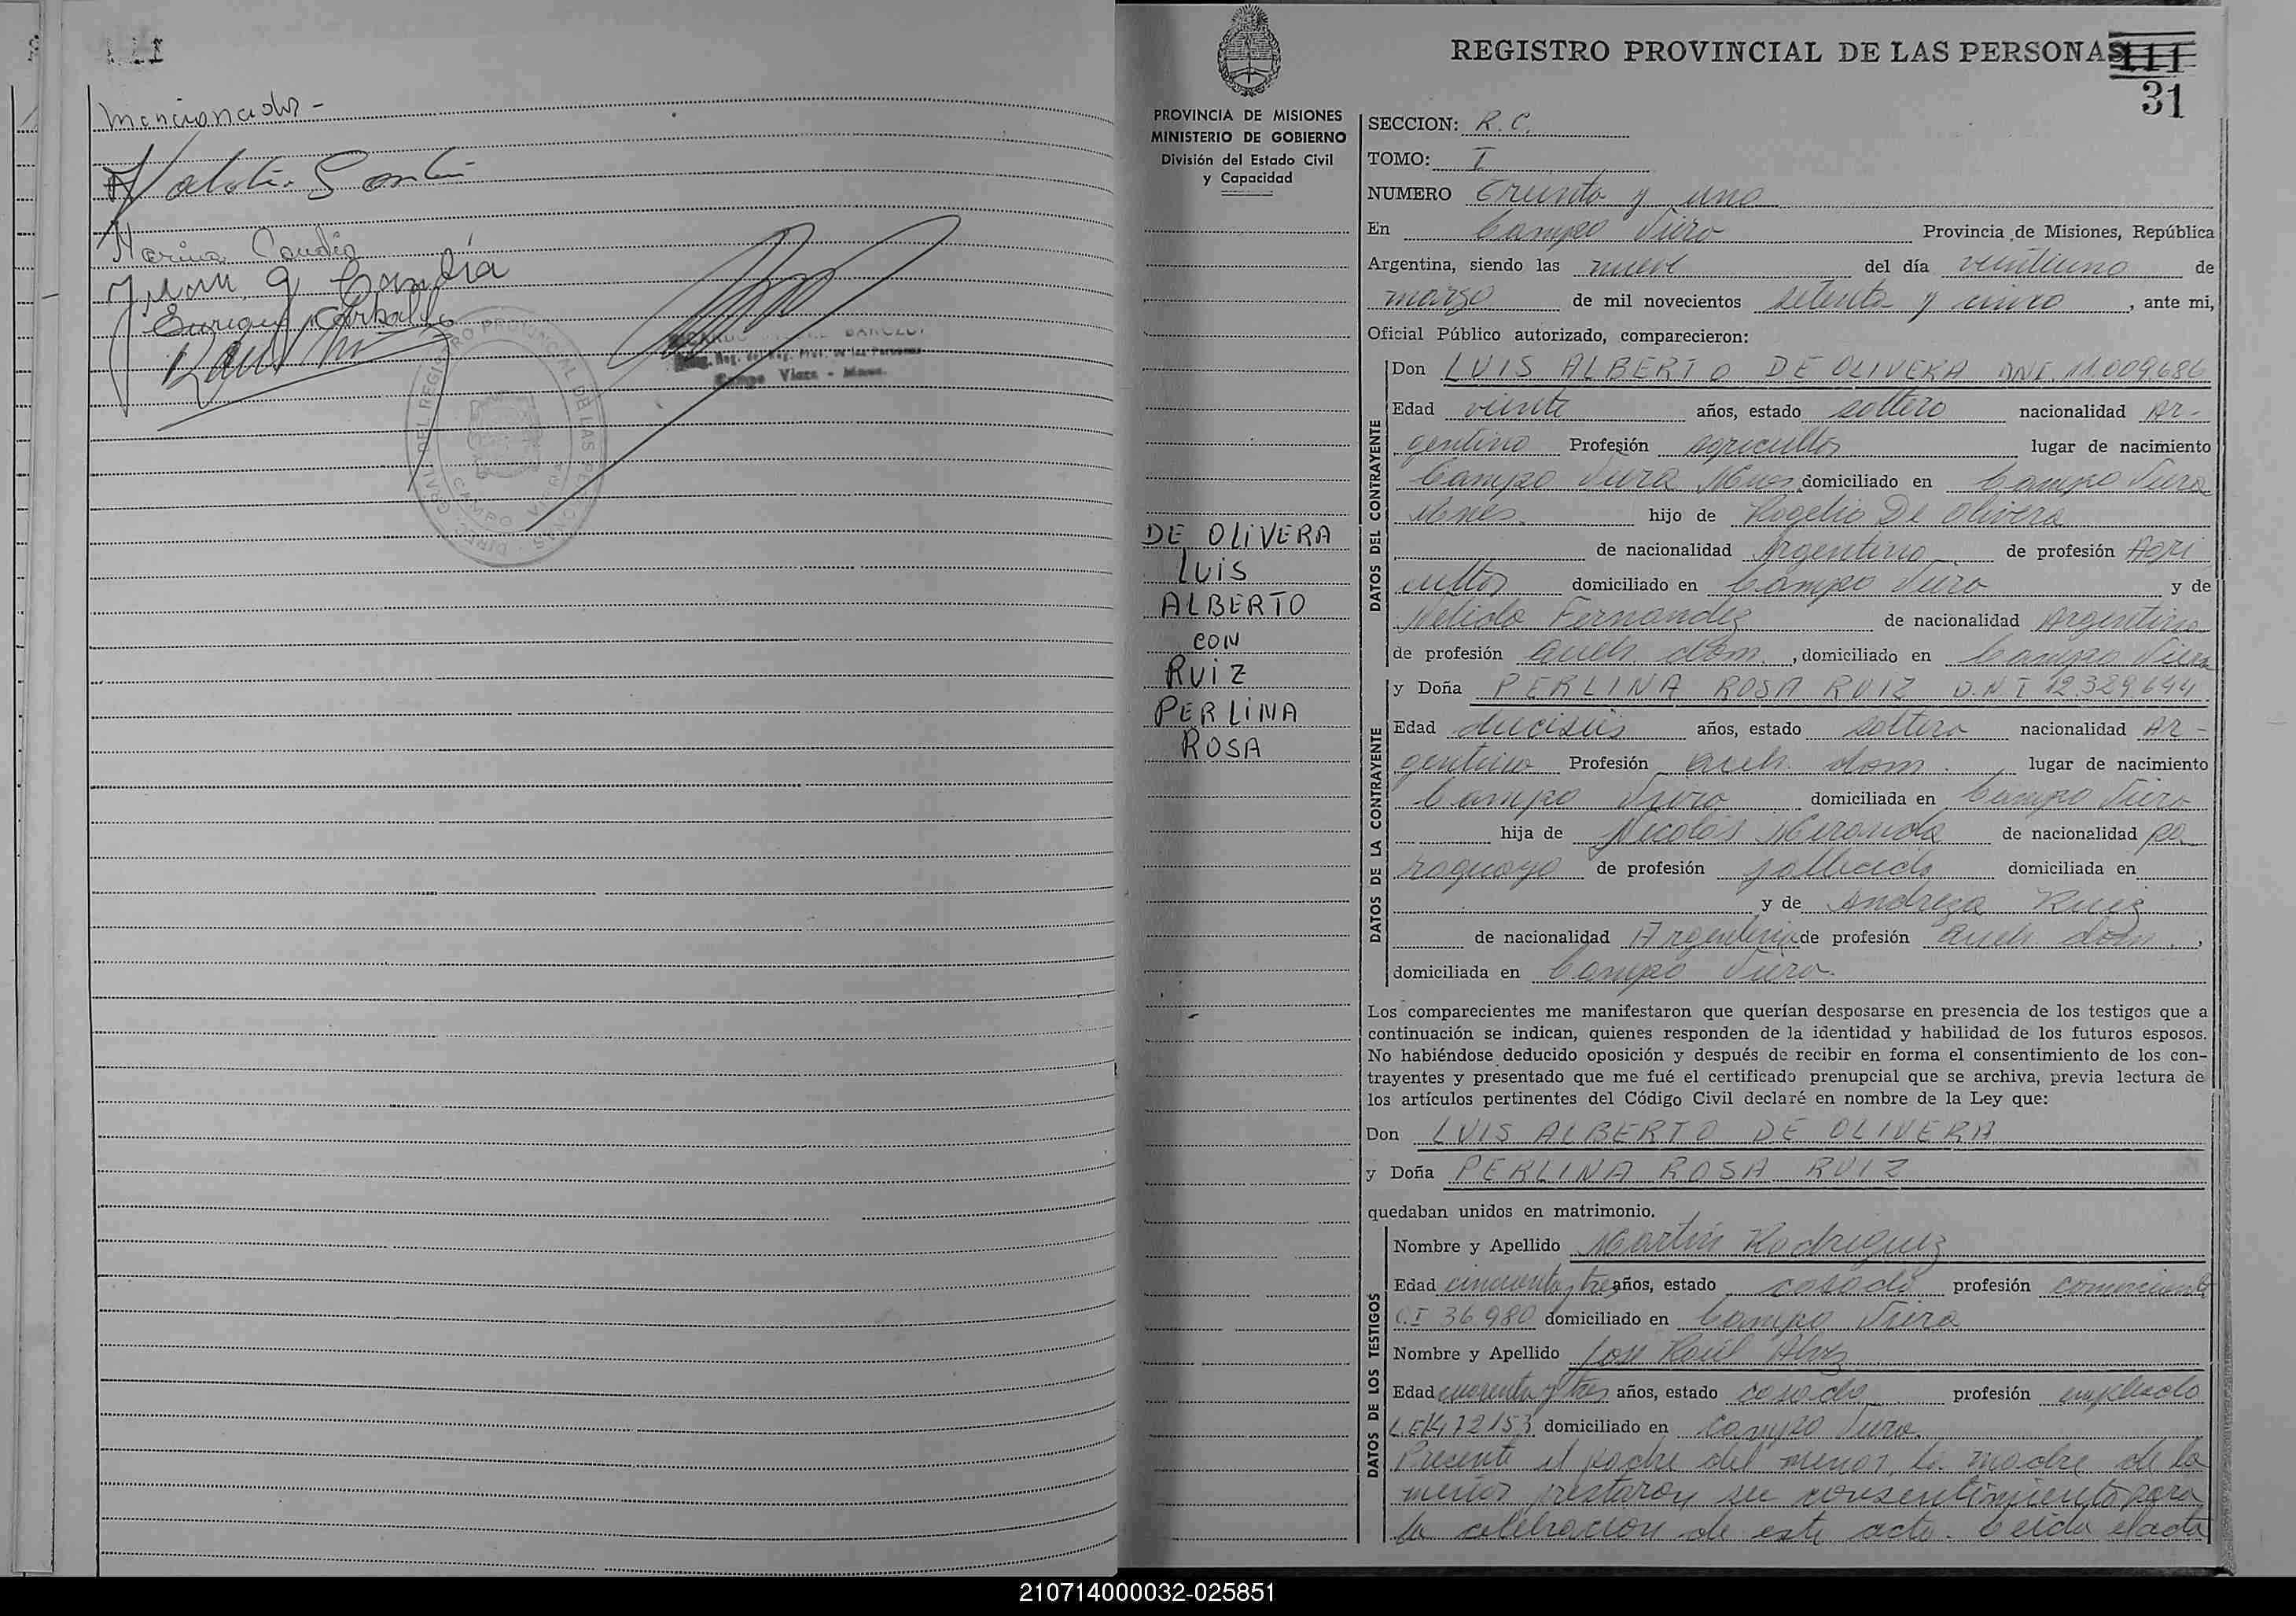 111
mencionados -
Natalia
Marina Candia
Juan G Candia
Enrique
DIREC. GRAL. DEL REGISTRO PROVINCIAL DE LAS PERSONAS
CAMPO VIERA
Campo Viera - Mnes.
REGISTRO PROVINCIAL DE LAS PERSONAS
111
31
PROVINCIA DE MISIONES
MINISTERIO DE GOBIERNO
División del Estado Civil
y Capacidad
DE OLIVERA
LUIS
ALBERTO
CON
RUIZ
PERLINA
ROSA
SECCION: R. C.
TOMO: I
NUMERO Treinta y uno
En Campo Viera Provincia de Misiones, República
Argentina, siendo las nueve del día veintiuno de
marzo de mil novecientos setenta y cinco, ante mi,
Oficial Público autorizado, comparecieron:
DATOS DEL CONTRAYENTE
Don LUIS ALBERTO DE OLIVERA DNI. 11.009.686
Edad veinte años, estado soltero nacionalidad Ar-
gentino Profesión agricultor lugar de nacimiento
Campo Viera Mnes domiciliado en Campo Viera
Mnes. hijo de Rogelio De Olivera
de nacionalidad Argentino de profesión Agri
cultor domiciliado en Campo Viera y de
Nelida Fernandez de nacionalidad Argentina
de profesión queh. dom., domiciliado en Campo Viera
DATOS DE LA CONTRAYENTE
y Doña PERLINA ROSA RUIZ D.N.I 12.329.644
Edad dieciseis años, estado soltera nacionalidad Ar-
gentina Profesión queh. dom. lugar de nacimiento
Campo Viera domiciliada en Campo Viera
hija de Nicolás Miranda de nacionalidad pa
raguayo de profesión fallecido domiciliada en
y de Andreza Ruiz
de nacionalidad Argentina de profesión queh. dom.,
domiciliada en Campo Viera.
Los comparecientes me manifestaron que querían desposarse en presencia de los testigos que a
continuación se indican, quienes responden de la identidad y habilidad de los futuros esposos.
No habiéndose deducido oposición y después de recibir en forma el consentimiento de los con-
trayentes y presentado que me fué el certificado prenupcial que se archiva, previa lectura de
los artículos pertinentes del Código Civil declaré en nombre de la Ley que:
Don LUIS ALBERTO DE OLIVERA
y Doña PERLINA ROSA RUIZ
quedaban unidos en matrimonio.
DATOS DE LOS TESTIGOS
Nombre y Apellido Martin Rodriguez
Edad cincuenta y tres años, estado casado profesión comerciante
C.I 36.980 domiciliado en Campo Viera
Nombre y Apellido José Raúl
Edad cuarenta y tres años, estado casado profesión empleado
domiciliado en Campo Viera.
Presente el padre del menor, la madre de la
menor prestaron su consentimiento para
la celebración de este acto. Leida el acta
210714000032-025851